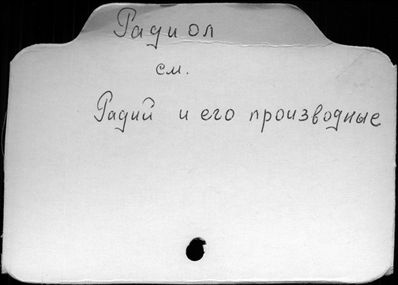 Радиол
см.
Радий и его производные